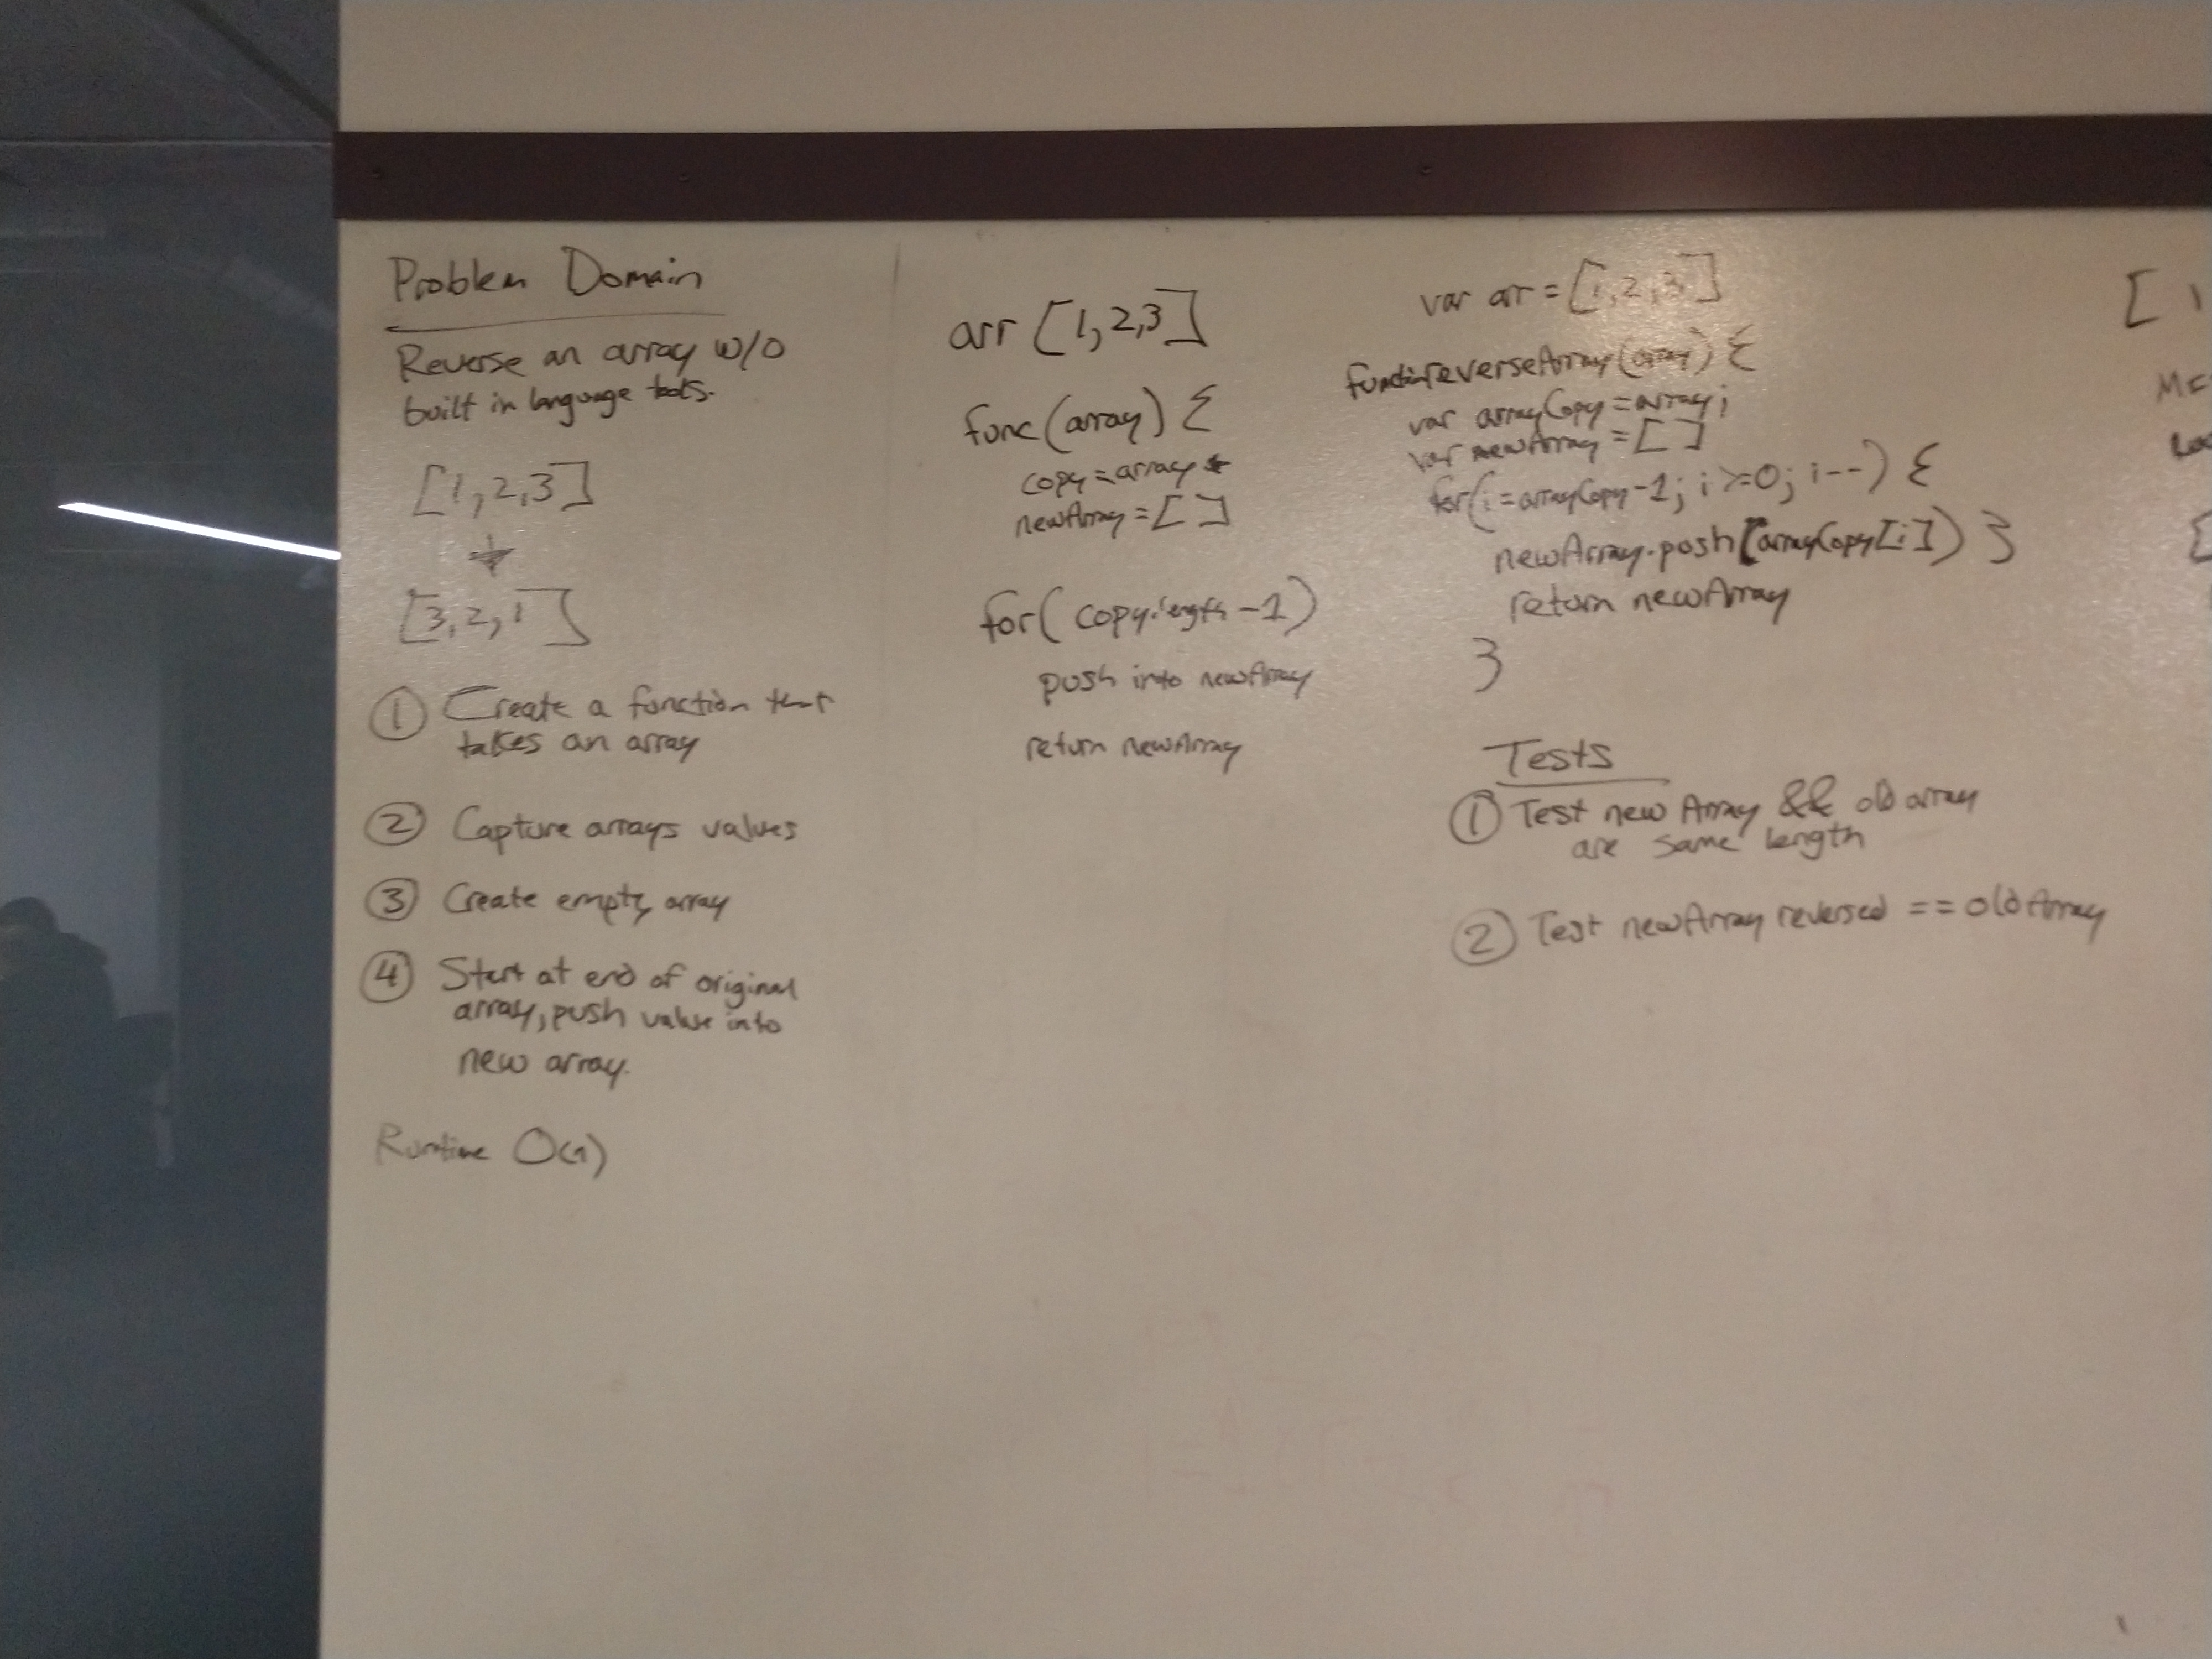 Problem Domain
Reverse an array w/o
built in language tools.
[1,2,3]
[3,2,1]
① Create a function that
takes an array
② Capture arrays values
③ Create empty array
④ Start at end of original
array, push value into
new array.
Runtime
arr [1,2,3]
func(array) {
copy=array
newArray=[ ]
for(copy.length-1)
push into newArray
return newArray
var arr = [1,2,3]
function reverseArray(array) {
var arrayCopy=array;
var newArray = [ ]
for(i=arrayCopy-1; i>=0; i--) {
newArray.push(arrayCopy[i]) }
return newArray
}
Tests
① Test new Array && old array
are same length
② Test newArray reversed == oldArray
[ 1
{